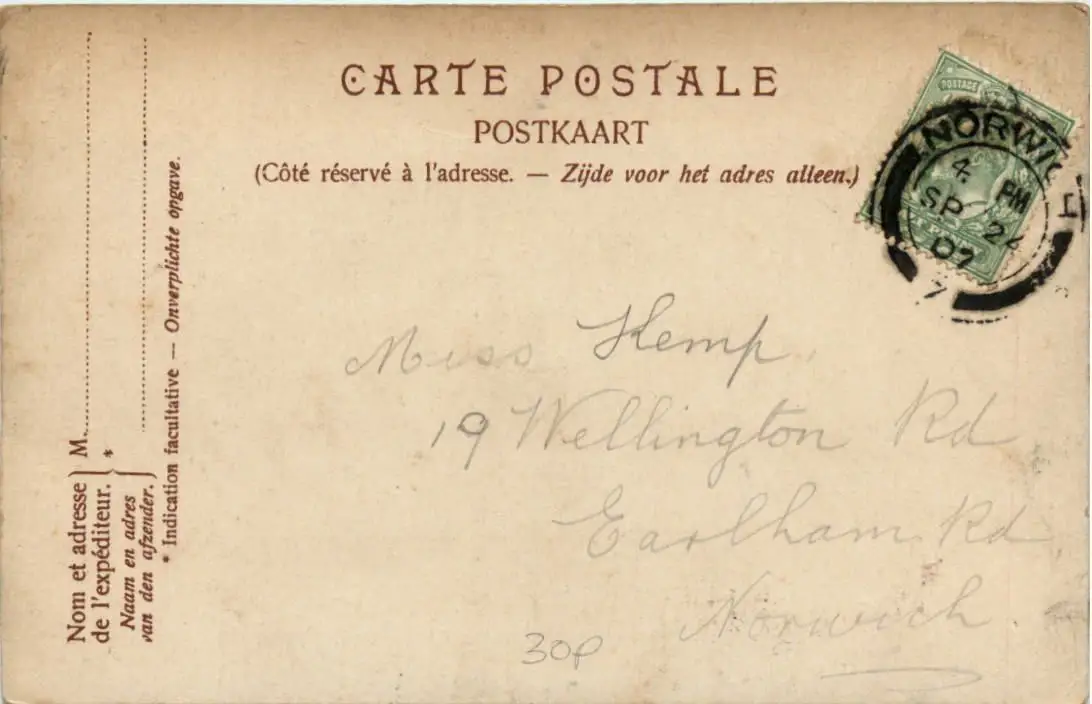 CARTE POSTALE
POSTKAART
(Côté réservé à l'adresse. — Zijde voor het adres alleen.)
POSTAGE
NORWICH
4 PM
SP 24
07
7
Miss Kemp
19 Wellington Rd
Earlham Rd
Norwich
30p
Nom et adresse de l'expéditeur.
M.
*
Naam en adres van den afzender.
* Indication facultative — Onverplichte opgave.